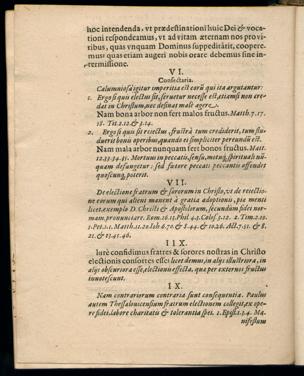 hoc intendenda, vt prædestinationi huic Dei & vocationi
respondeamus, vt ad vitam æternam nos pro viribus,
quas vnquam Dominus suppeditârit, cooperemur:
quas etiam augeri nobis orare debemus sine intermissione.
VI.
Consectaria.
Calumniosa igitur imperitia est eorū qui ita argutantur:
1. Ergo si quis electus sit, seruetur necesse est, etiamsi non credat
in Christum, nec desinat malè agere.
Nam bona arbor non fert malos fructus. Matth. 7. 17.
18. Tit. 2. 12. & 3. 14.
2. Ergo si quis sit reiectus, frustrà tum crediderit, tum studuerit
bonis operibus, quando ei simpliciter pereundū est.
Nam mala arbor nunquam fert bonos fructus. Matt.
12. 33. 34. 35. Mortuus in peccatis, sensu, motuq́; spirituali nūquam
defungetur: sed futere peccati peccantis offendet
quoscunq́; poterit.
VII.
De electione fratrum & sororum in Christo, vt de reiectione
eorum qui alieni manent à gratia adoptionis, piè mente
licet exemplo D. Christi & Apostolorum, secundum fidei normam,
pronuntiare. Rom. 16. 13. Phil. 4. 3. Colos. 3. 12. 2. Tim. 2. 19.
1. Pet. 1. 1. Matth. 11. 20. Ioh. 6. 70. & 8. 44. & 10. 26. Act. 7. 51. & 8.
21. & 13. 45. 46.
IIX.
Iurè confidimus fratres & sorores nostras in Christo
electionis consortes esse: licet demus, in alijs illustriora, in
alijs obscuriora esse, electionis effecta, quæ per externos fructus
innotescunt.
IX.
Nam contrariorum contraria sunt consequentia. Paulus
autem Thessalonicensium fratrum electionem collegit, ex opere
fidei, labore charitatis & tolerantia spei. 1. Epist. 1. 3. 4. Manifestum